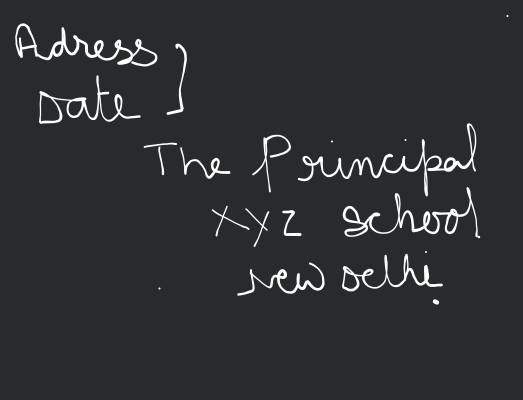 Adress }
Date
The Principal
XYZ School
New Delhi.